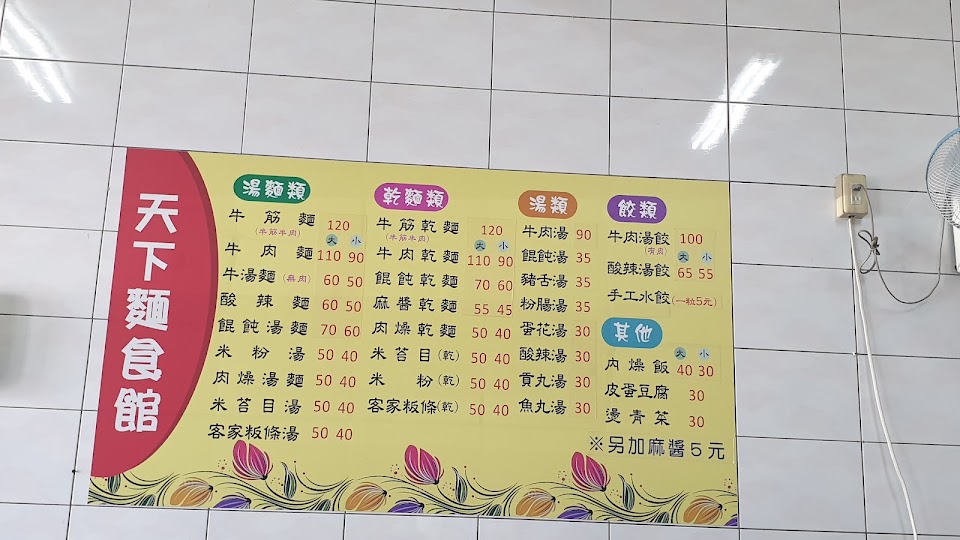 天下麵食館
湯麵類
牛筋麵 120
(半筋半肉) 大 小
牛肉麵 110 90
牛湯麵(無肉) 60 50
酸辣麵 60 50
餛飩湯麵 70 60
米粉湯 50 40
肉燥湯麵 50 40
米苔目湯 50 40
客家粄條湯 50 40
乾麵類
牛筋乾麵 120
(半筋半肉) 大 小
牛肉乾麵 110 90
餛飩乾麵 70 60
麻醬乾麵 55 45
肉燥乾麵 50 40
米苔目(乾) 50 40
米粉(乾) 50 40
客家粄條(乾) 50 40
湯類
牛肉湯 90
餛飩湯 35
豬舌湯 35
粉腸湯 35
蛋花湯 30
酸辣湯 30
貢丸湯 30
魚丸湯 30
餃類
牛肉湯餃 100
(有肉) 大 小
酸辣湯餃 65 55
手工水餃(一粒5元)
其他
大 小
肉燥飯 40 30
皮蛋豆腐 30
燙青菜 30
※另加麻醬5元